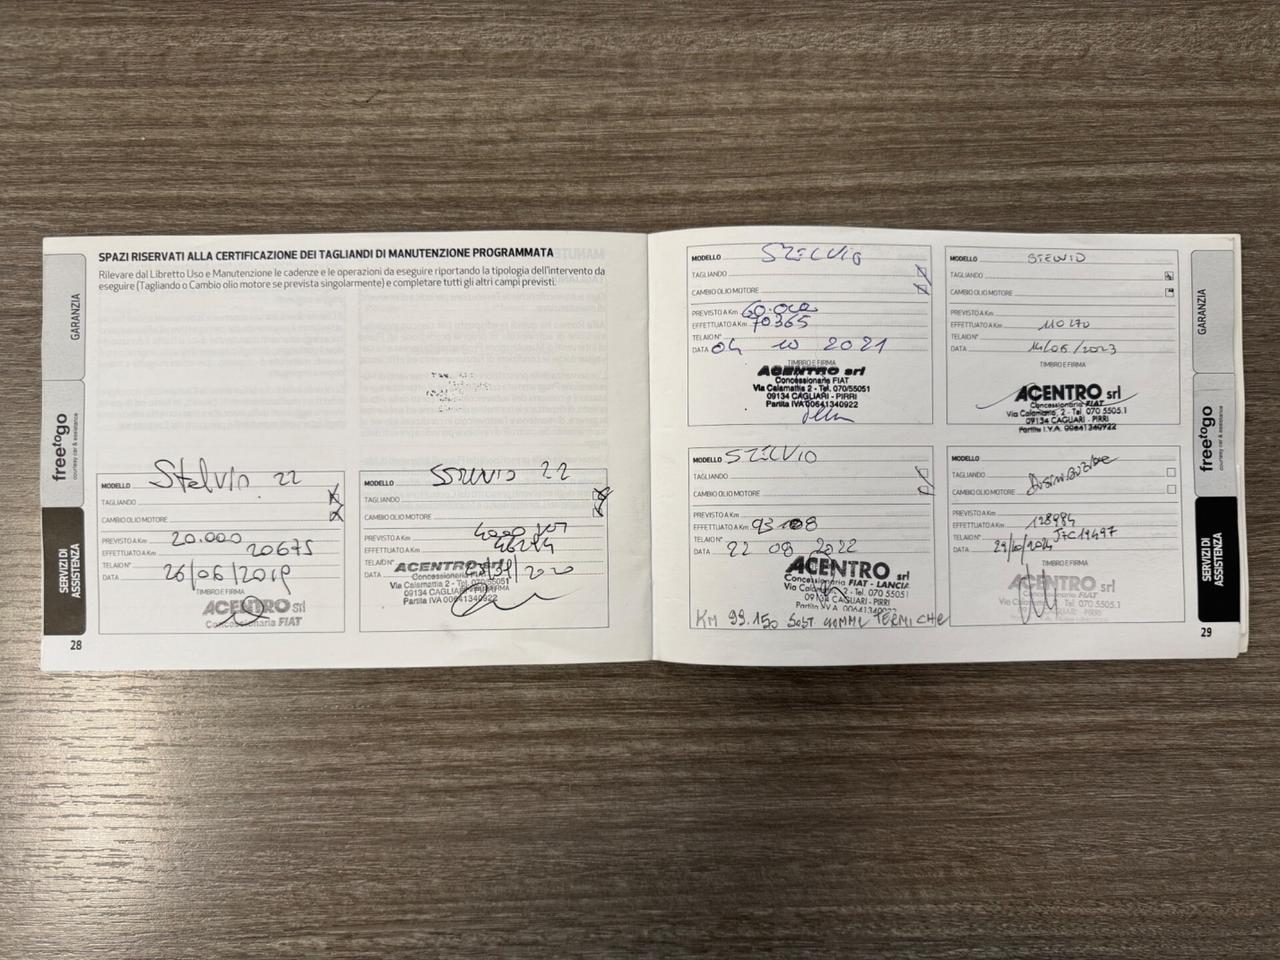 SPAZI RISERVATI ALLA CERTIFICAZIONE DEI TAGLIANDI DI MANUTENZIONE PROGRAMMATA
Rilevare dal Libretto Uso e Manutenzione le cadenze e le operazioni da eseguire riportando la tipologia dell'intervento da
eseguire (Tagliando o Cambio olio motore se prevista singolarmente) e completare tutti gli altri campi previsti.
GARANZIA
freetogo
courtesy car & assistance
SERVIZI DI
ASSISTENZA
MODELLO Stelvio 22
TAGLIANDO
CAMBIO OLIO MOTORE
PREVISTO A Km 20.000
EFFETTUATO A Km 20675
TELAIO N°
DATA 26/06/2019
TIMBRO E FIRMA
ACENTRO srl
Concessionaria FIAT
28
MODELLO STELVIO 22
TAGLIANDO
CAMBIO OLIO MOTORE
PREVISTO A Km
EFFETTUATO A Km 46294
TELAIO N°
DATA 2020
ACENTRO srl
Concessionaria FIAT
Via Calamattia 2 - Tel. 070/55051
09134 CAGLIARI - PIRRI
Partita IVA 00641340922
MODELLO STELVIO
TAGLIANDO
CAMBIO OLIO MOTORE
PREVISTO A Km 60.000
EFFETTUATO A Km 70365
TELAIO N°
DATA 04 10 2021
TIMBRO E FIRMA
ACENTRO srl
Concessionaria FIAT
Via Calamattia 2 - Tel. 070/55051
09134 CAGLIARI - PIRRI
Partita IVA 00641340922
MODELLO STELVIO
TAGLIANDO
CAMBIO OLIO MOTORE
PREVISTO A Km
EFFETTUATO A Km 110270
TELAIO N°
DATA 14/06/2023
TIMBRO E FIRMA
ACENTRO srl
Concessionaria FIAT
Via Calamattia, 2 - Tel. 070 5505.1
09134 CAGLIARI - PIRRI
Partita I.V.A. 00641340922
MODELLO STELVIO
TAGLIANDO
CAMBIO OLIO MOTORE
PREVISTO A Km
EFFETTUATO A Km
TELAIO N°
DATA 22 08 2022
ACENTRO srl
Concessionaria FIAT - LANCIA
2 - Tel. 070 5505.1
09134 CAGLIARI - PIRRI
P. IVA 00641340922
KM 99.150 SOST GOMME TERMICHE
MODELLO
TAGLIANDO
CAMBIO OLIO MOTORE
PREVISTO A Km
EFFETTUATO A Km 128984
TELAIO N° J7C19497
DATA 29/10/2024
TIMBRO E FIRMA
ACENTRO srl
Concessionaria FIAT
Tel. 070 5505.1
CAGLIARI - PIRRI
GARANZIA
freetogo
courtesy car & assistance
SERVIZI DI
ASSISTENZA
29